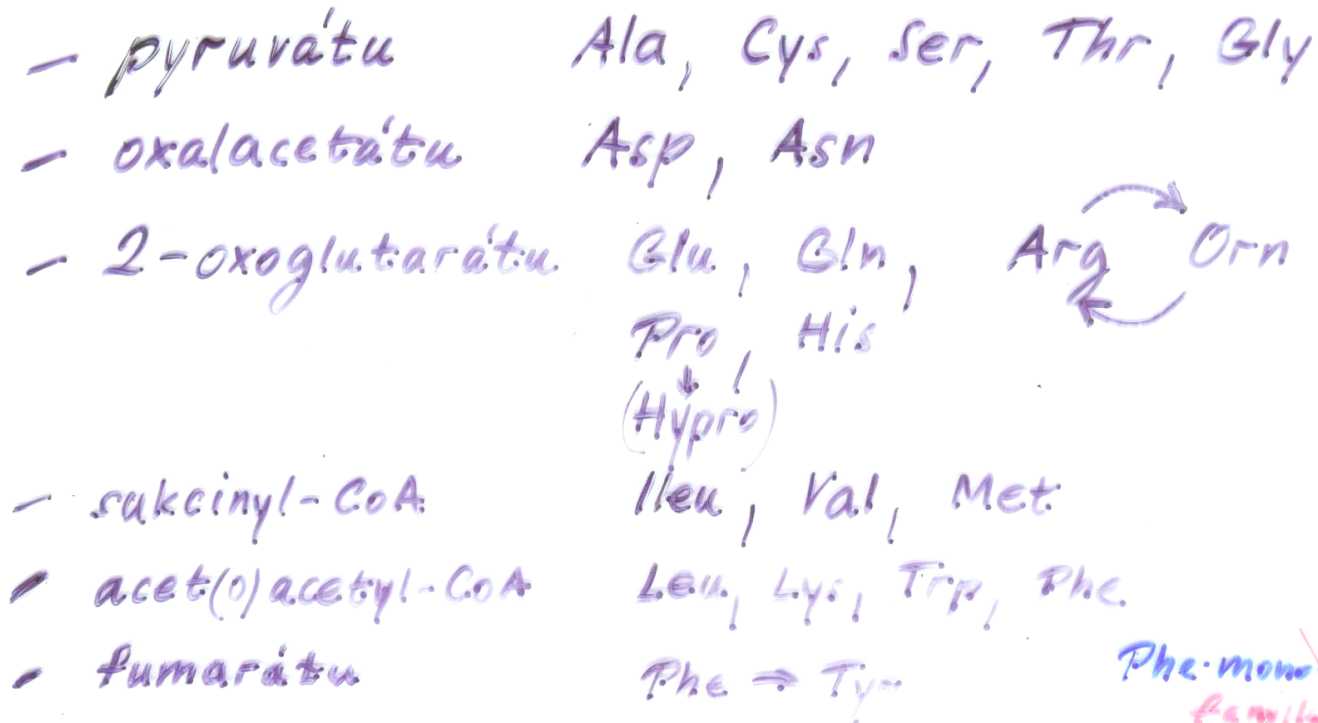 - pyruvátu Ala, Cys, Ser, Thr, Gly
- oxalacetátu Asp, Asn
- 2-oxoglutarátu Glu, Gln, Arg Orn
Pro, His
↓
(Hypro)
- sukcinyl-CoA Ileu, Val, Met
- acet(o)acetyl-CoA Leu, Lys, Trp, Phe
- fumarátu Phe → Tyr Phe-mono